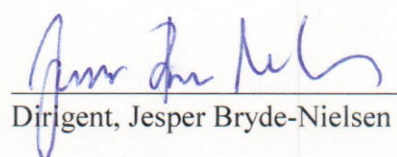 Dirigent, Jesper Bryde-Nielsen